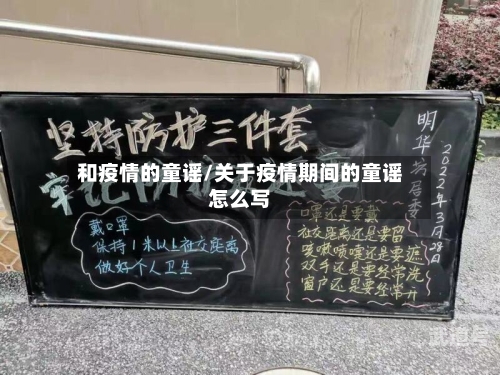 坚持防护三件套
牢记防护还要
和疫情的童谣/关于疫情期间的童谣
怎么写
戴口罩
保持1米以上社交距离
做好个人卫生
口罩还是要戴
社交距离还是要留
咳嗽喷嚏还是要遮
双手还是要经常洗
窗户还是要经常开
明华
居委
2022年3月29日